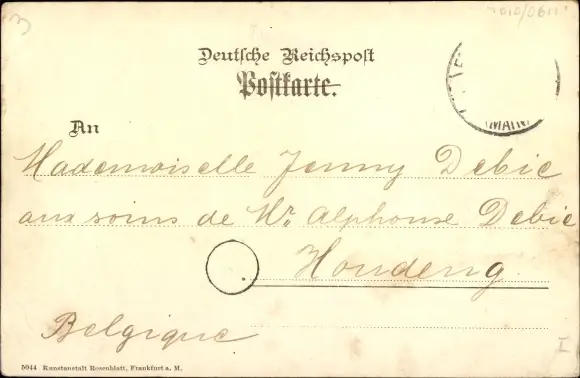 3
1010/0611
Deutsche Reichspost
Postkarte.
(MAIN)
An
Mademoiselle Jenny Debie
aux soins de Mr. Alphonse Debie
Houdeng
Belgique
I
5044 Kunstanstalt Rosenblatt, Frankfurt a. M.